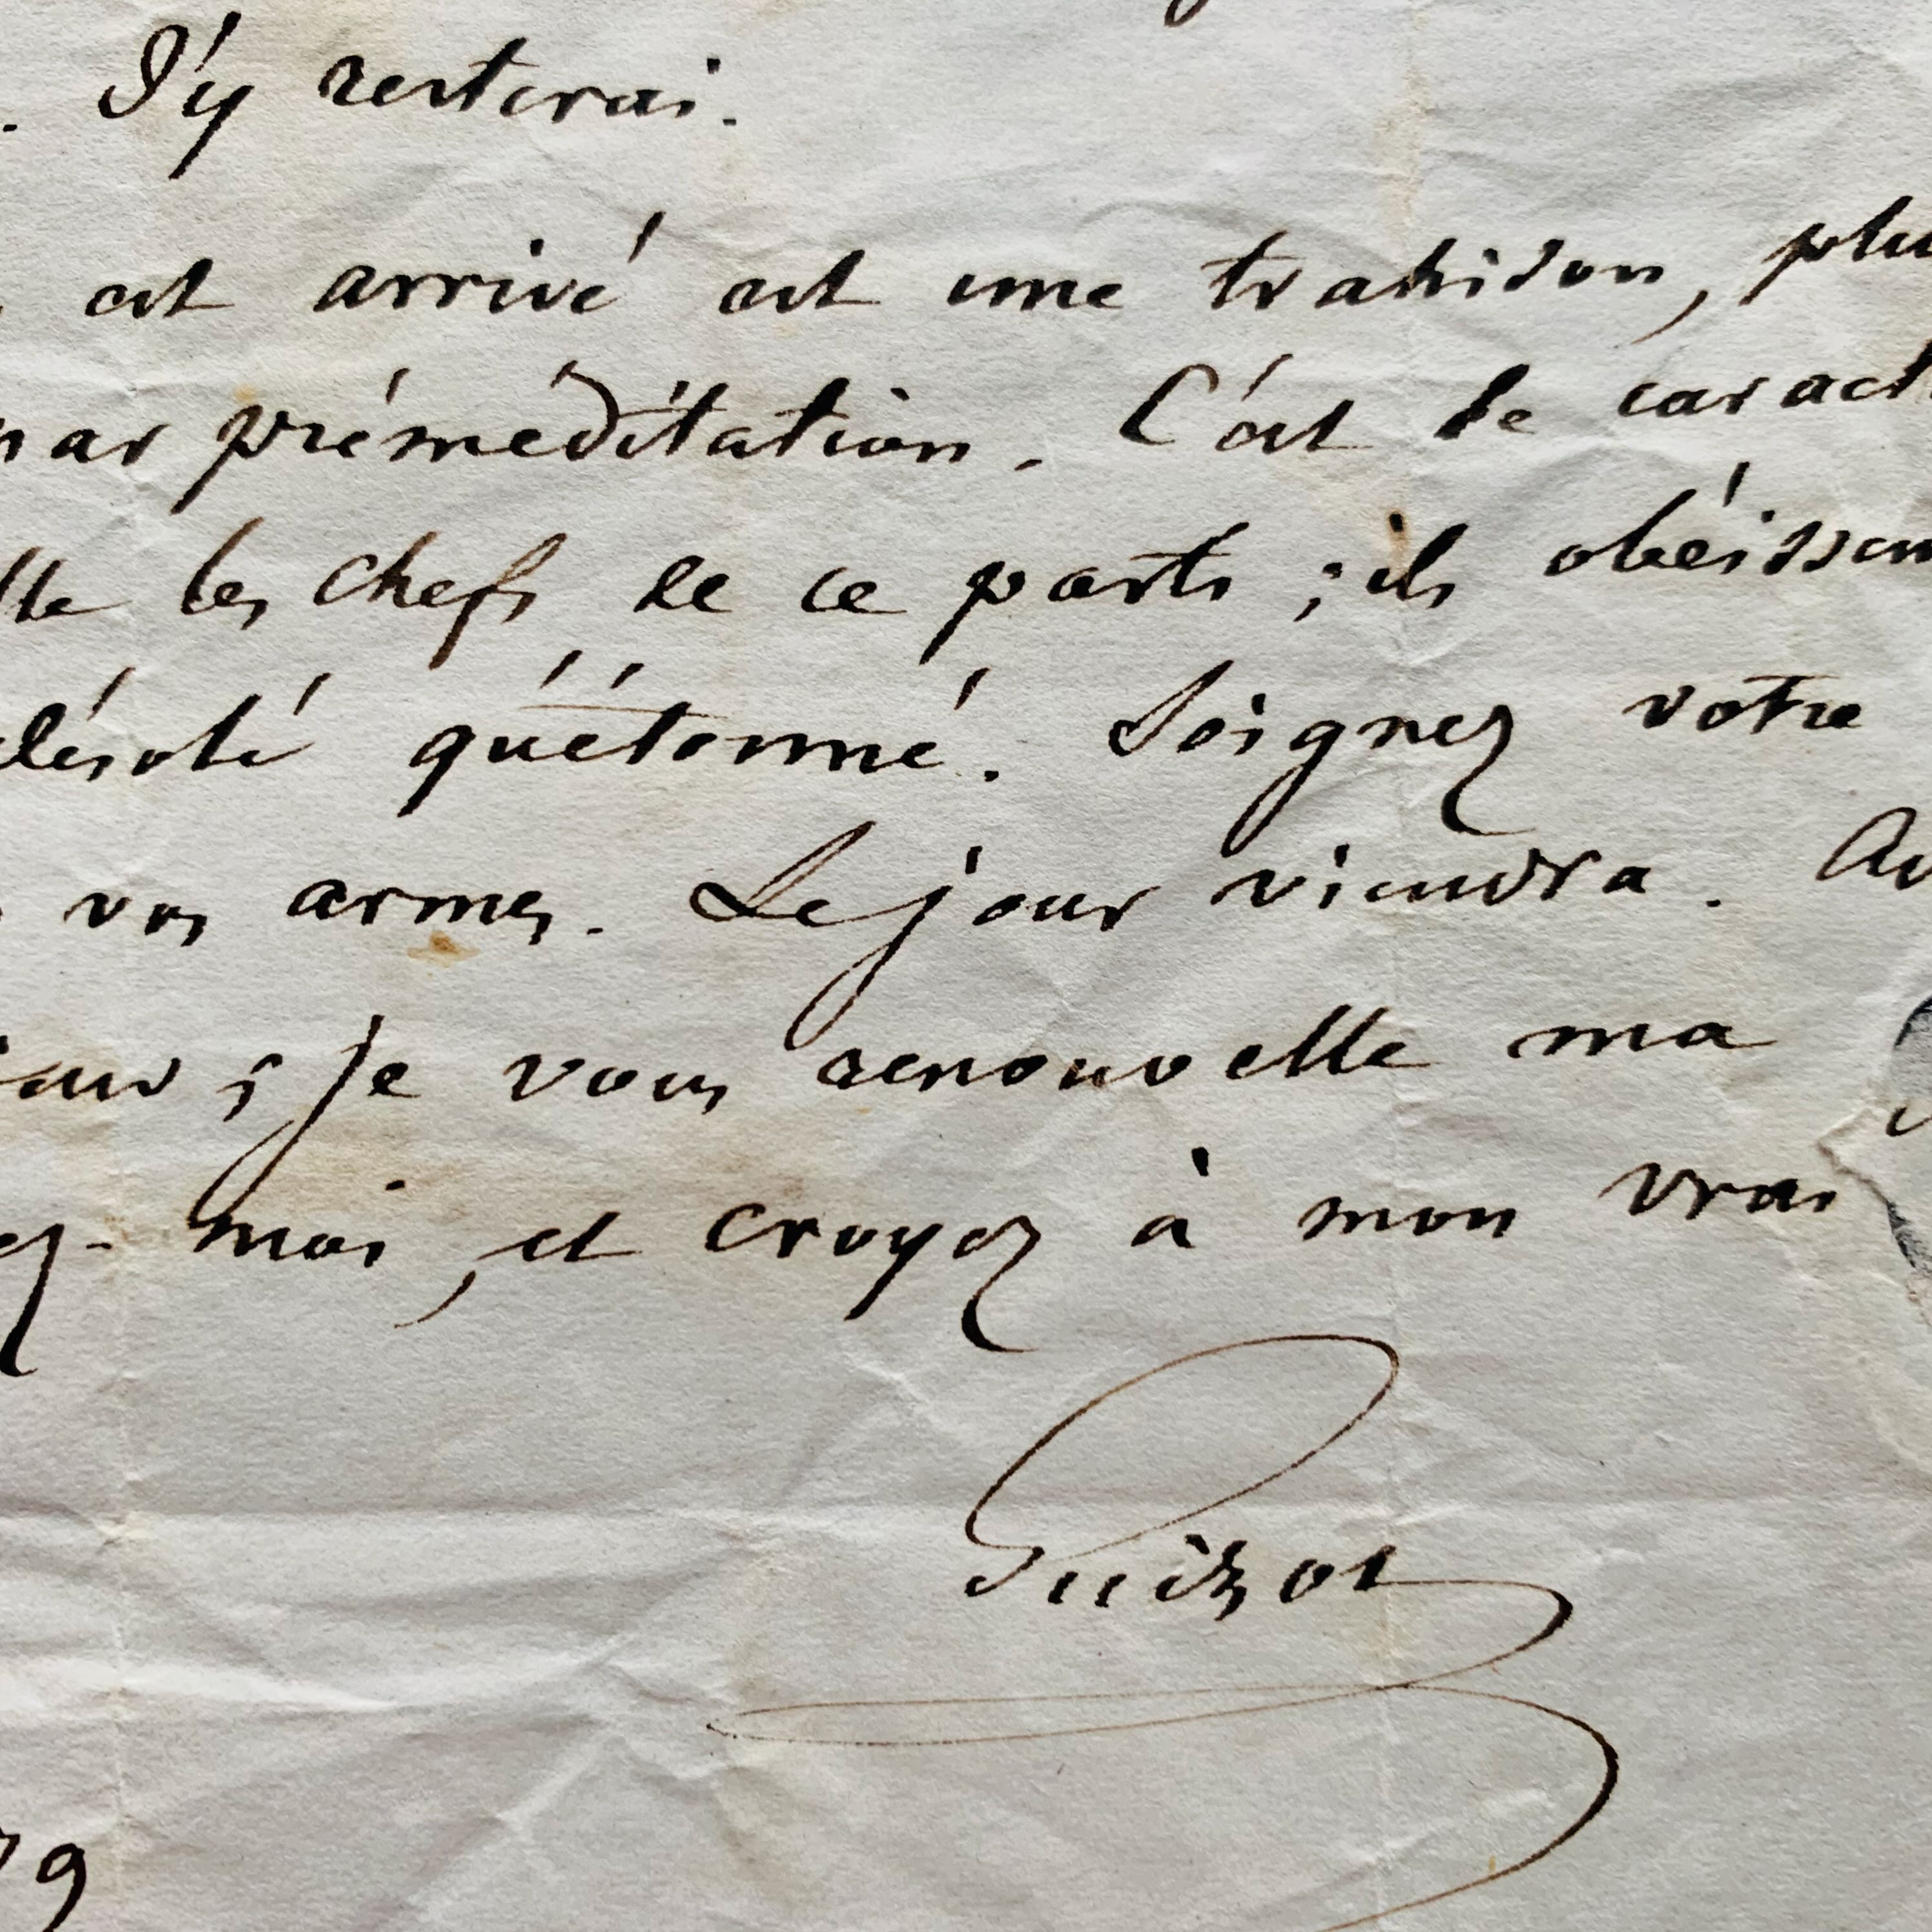 . J'y resterai.
est arrivé est une trahison, plu
par préméditation. C'est le caract
les chefs de ce parti ; ils obéissen
désolé qu'étonné. Soignez votre
vos armes. Le jour viendra. Au
; je vous renouvelle ma
ez-moi, et croyez à mon vrai
Guizot
9